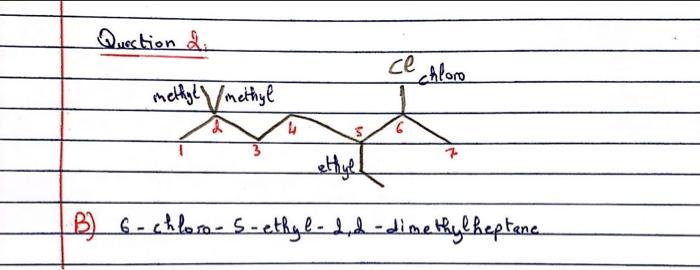 Question 2:
Cl chloro
methyl methyl
2 4 5 6
1 3 7
ethyl
B) 6-chloro-5-ethyl-2,2-dimethylheptane